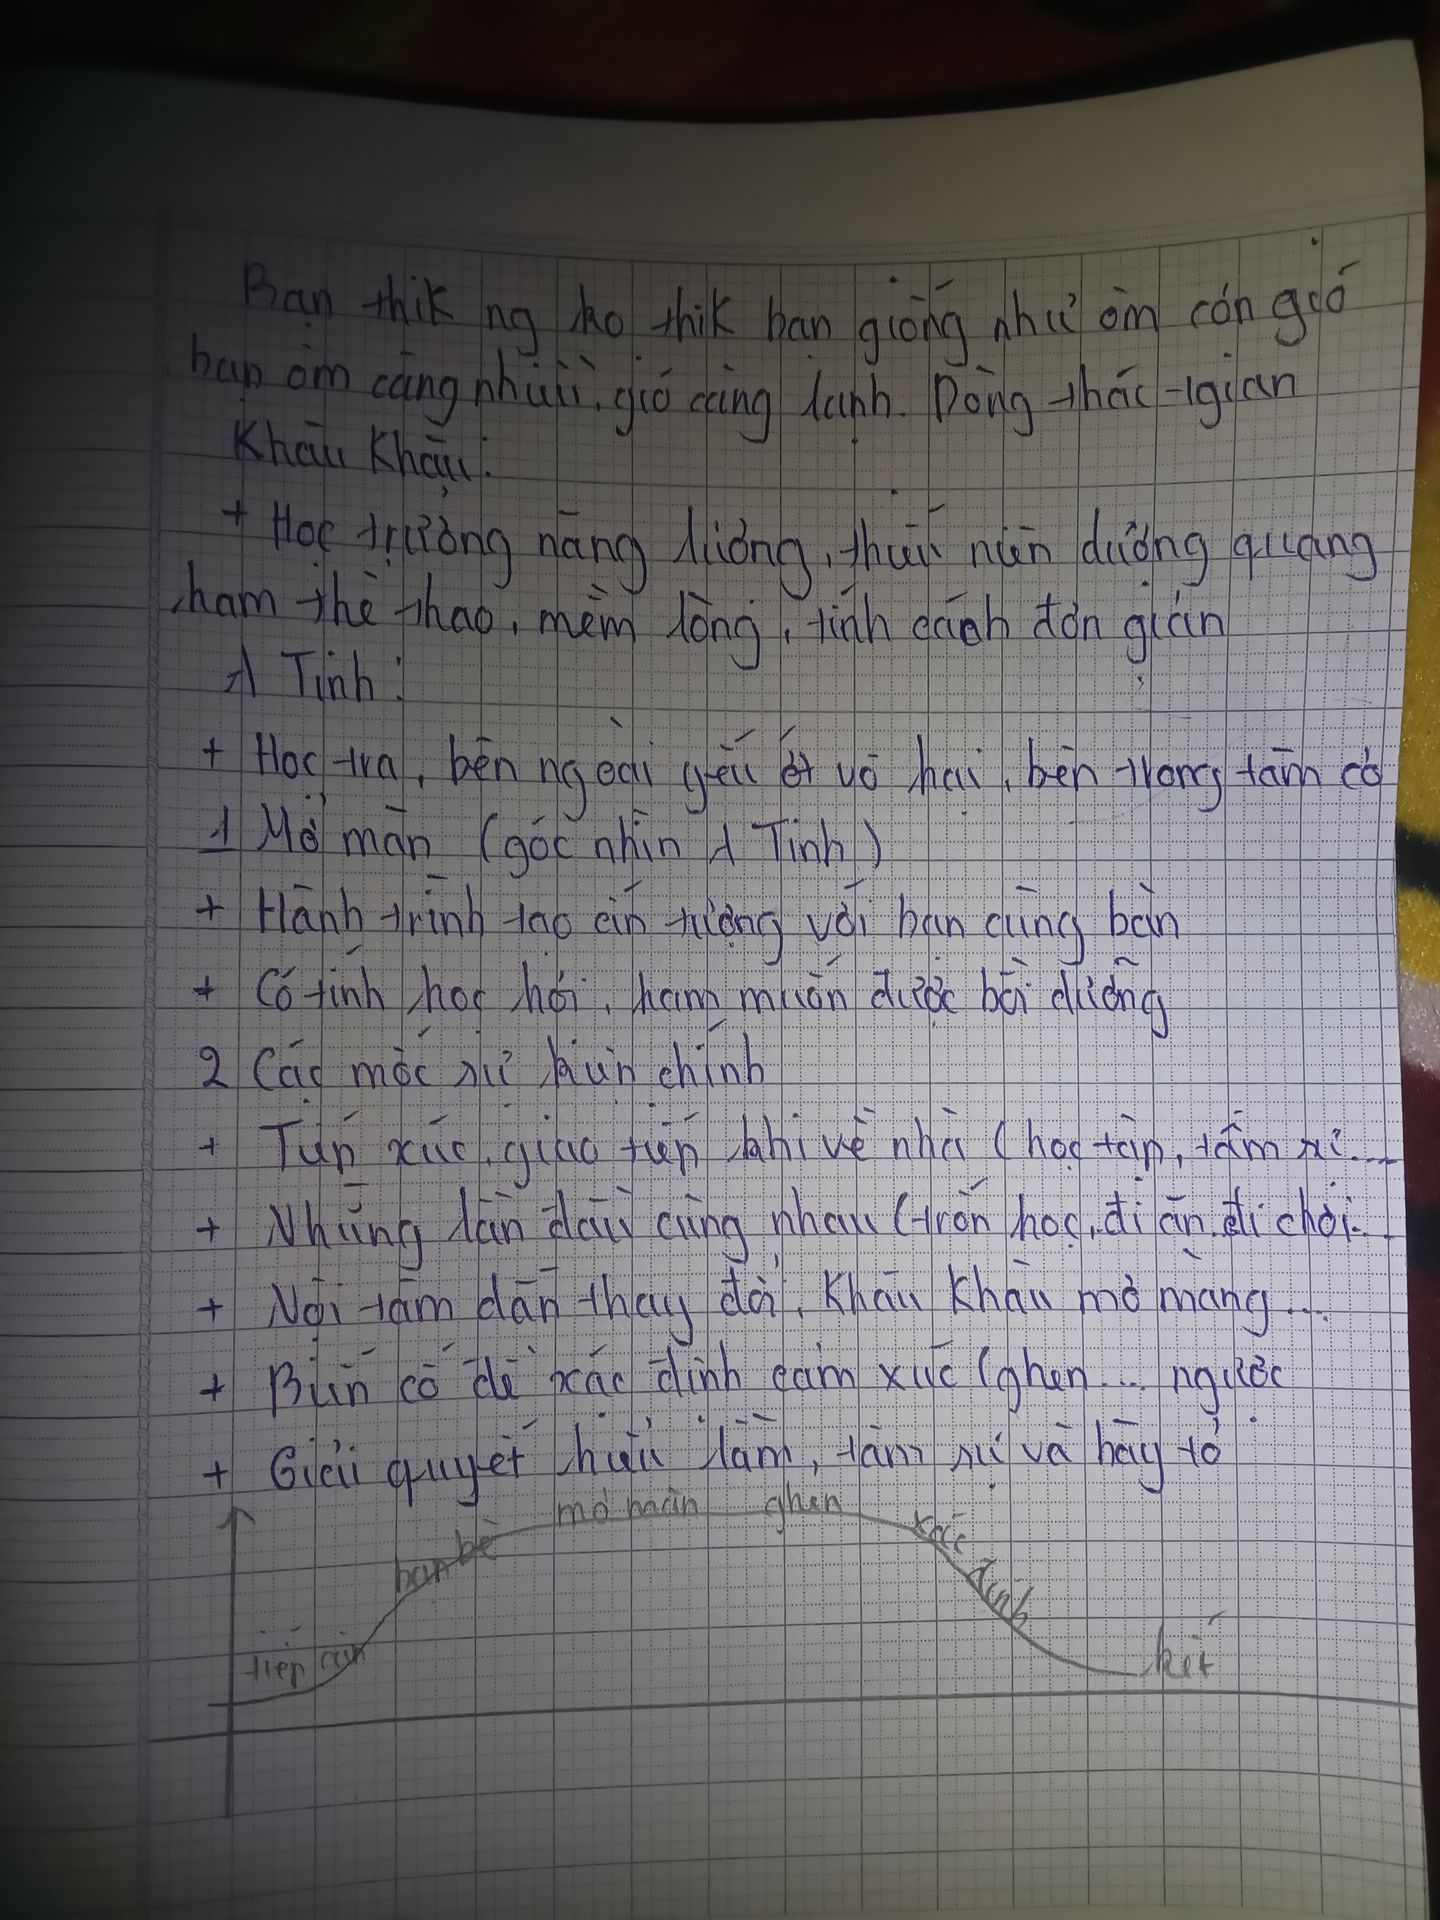 Bạn thik ng ko thik bạn giống như ôm cơn gió
bạn ôm càng nhiều, gió càng lạnh. Dòng thác tgian
Khâu Khâu:
+ Học trường năng lượng, thiếu niên dương quang
ham thể thao, mềm lòng, tính cách đơn giản
A Tinh:
+ Học tra, bên ngoài yếu ớt vô hại, bên trong tâm cơ
1 Mở màn (góc nhìn A Tinh)
+ Hành trình tạo ấn tượng với bạn cùng bàn
+ Có tính học hỏi, ham muốn được bồi dưỡng
2 Các mốc sự kiện chính
+ Tiếp xúc, giao tiếp khi về nhà (học tập, tâm sự...
+ Những lần đầu cùng nhau (trốn học, đi ăn, đi chơi...
+ Nội tâm dần thay đổi, Khâu Khâu mơ màng...
+ Biến cố để xác định cảm xúc (ghen... ngược
+ Giải quyết hiểu lầm, tâm sự và bày tỏ
mở màn ghen
bạn bè xác định
tiếp cận kết